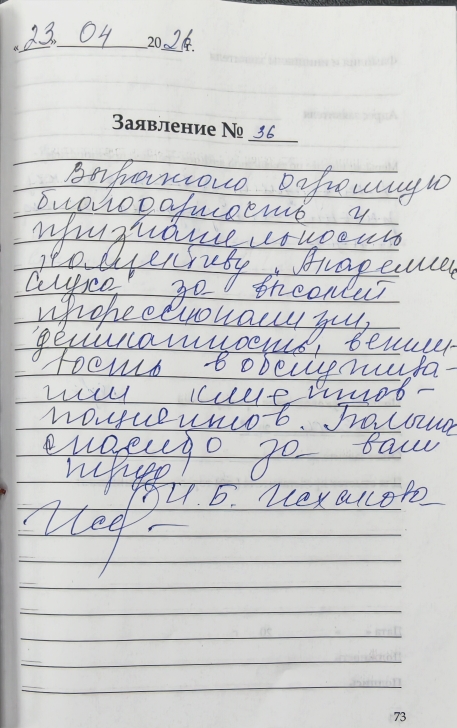 «23» 04 2026г.
Заявление № 36
Выражаю огромную
благодарность и
признательность
коллективу „Академии
слуха" за высокий
профессионализм,
деликатность, вежли-
вость в обслужива-
нии клиентов-
пациентов. Большое
спасибо за ваш
труд!
И.Б.
73